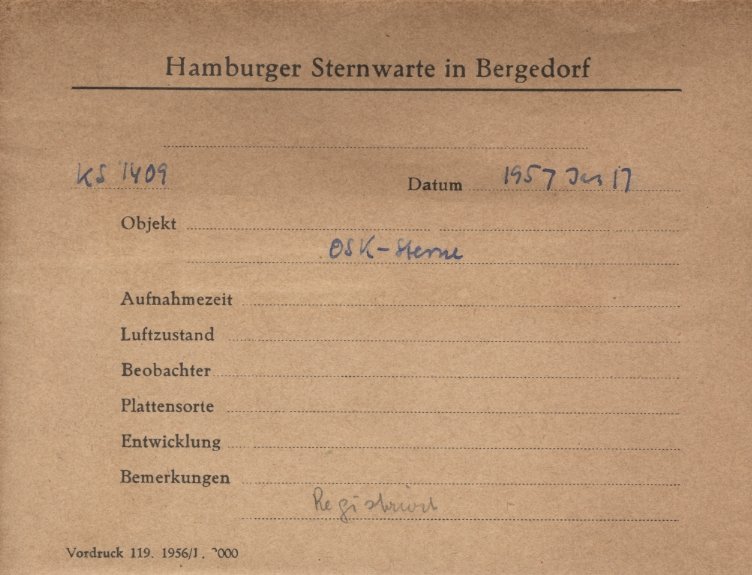 Hamburger Sternwarte in Bergedorf
KS 1409 Datum 1957 Jan 17
Objekt
OSK-Sterne
Aufnahmezeit
Luftzustand
Beobachter
Plattensorte
Entwicklung
Bemerkungen
Registriert
Vordruck 119. 1956/1.